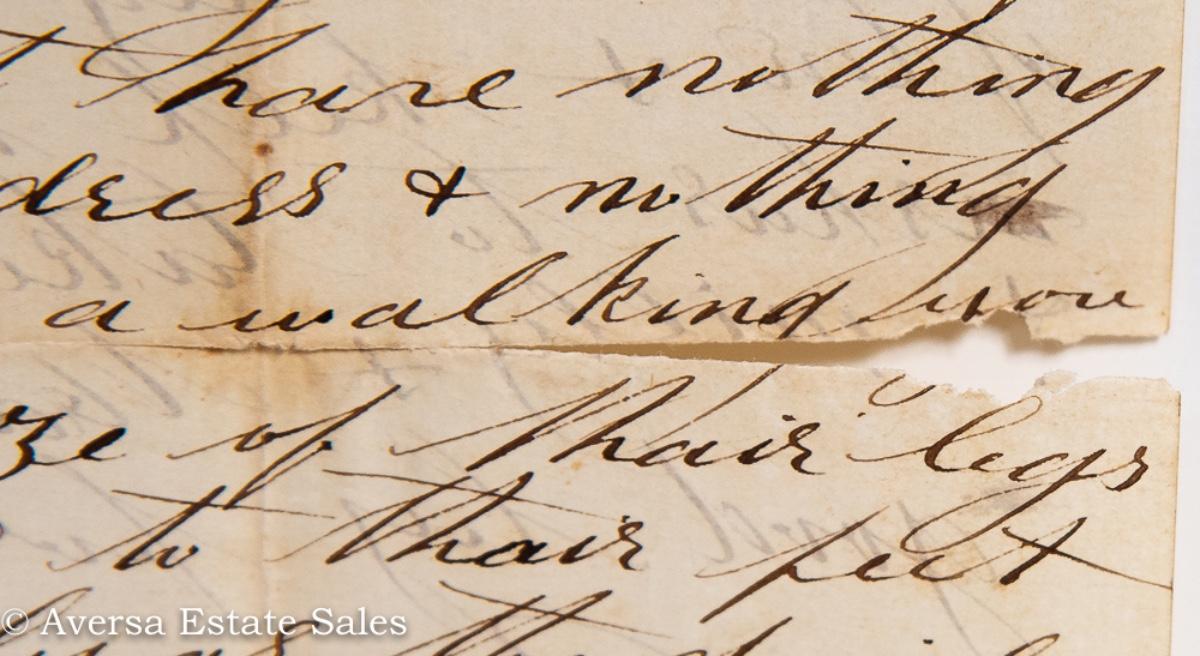 have nothing
dress & nothing
a walking you
ze of thair legs
to thair feet
© Aversa Estate Sales